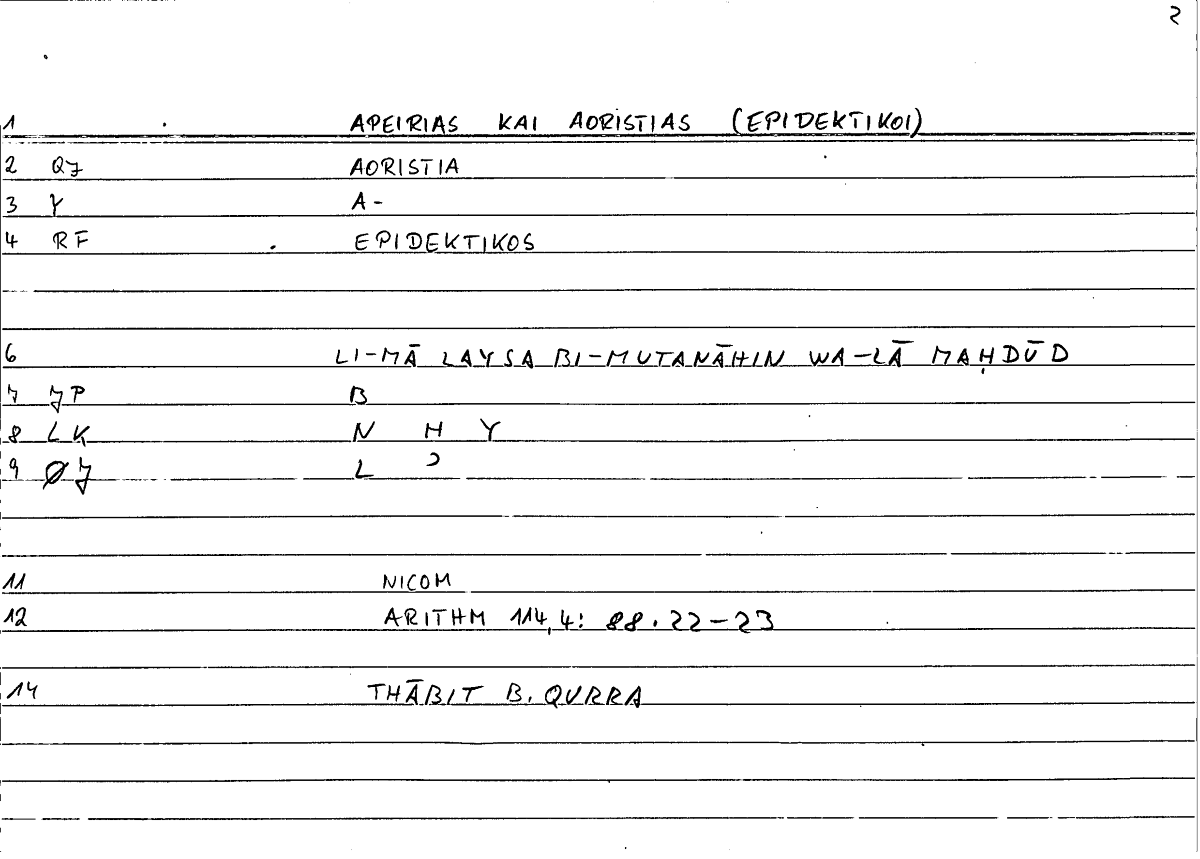 2
1 APEIRIAS KAI AORISTIAS (EPIDEKTIKOI)
2 QJ AORISTIA
3 Y A-
4 RF EPIDEKTIKOS
6 LI-MĀ LAYSA BI-MUTANĀHIN WA-LĀ MAḤDŪD
7 JP B
8 LK N H Y
9 ØJ L ʾ
11 NICOM
12 ARITHM 114,4: 88.22-23
14 THĀBIT B. QURRA